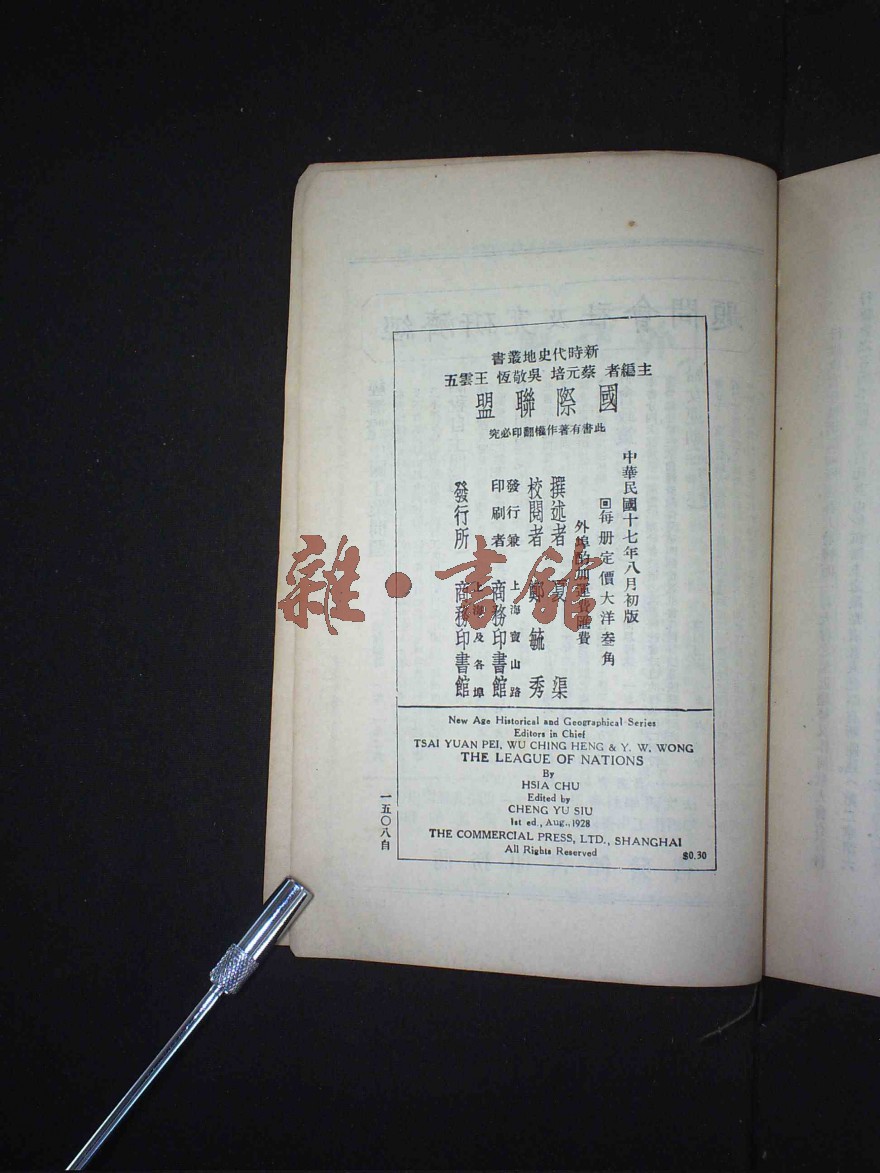 新時代史地叢書
主編者 蔡元培 吳敬恆 王雲五
國際聯盟
此書有著作權翻印必究
中華民國十七年八月初版
回每册定價大洋叁角
外埠酌加運費匯費
撰述者 夏渠
校閱者 鄭毓秀
發行兼印刷者 上海寶山路 商務印書館
發行所 上海及各埠 商務印書館
New Age Historical and Geographical Series
Editors in Chief
TSAI YUAN PEI, WU CHING HENG & Y. W. WONG
THE LEAGUE OF NATIONS
By
HSIA CHU
Edited by
CHENG YU SIU
1st ed., Aug., 1928
THE COMMERCIAL PRESS, LTD., SHANGHAI
All Rights Reserved
$0.30
一五〇八自
雜·書館